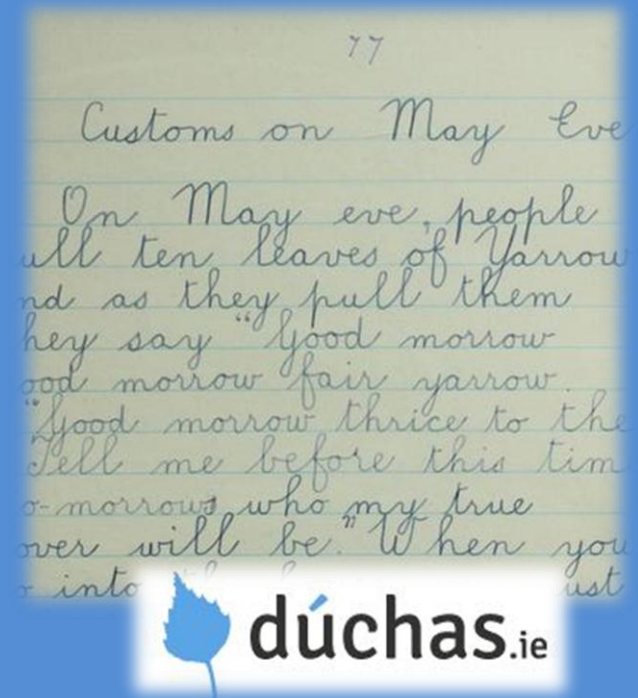 77
Customs on May Eve
On May eve, people
ull ten leaves of Yarrow
nd as they pull them
hey say "Good morrow
ood morrow fair yarrow.
"Good morrow thrice to the
Tell me before this tim
o-morrow who my true
over will be." When you
into
ust
dúchas.ie